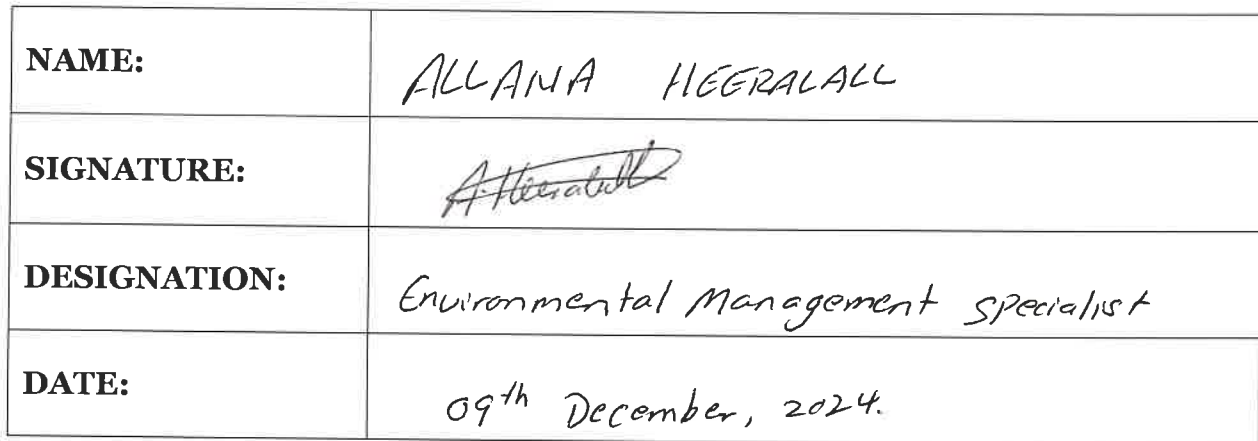 NAME: ALLANA HEERALALL
SIGNATURE: A. Heeralall
DESIGNATION: Environmental Management Specialist
DATE: 09th December, 2024.